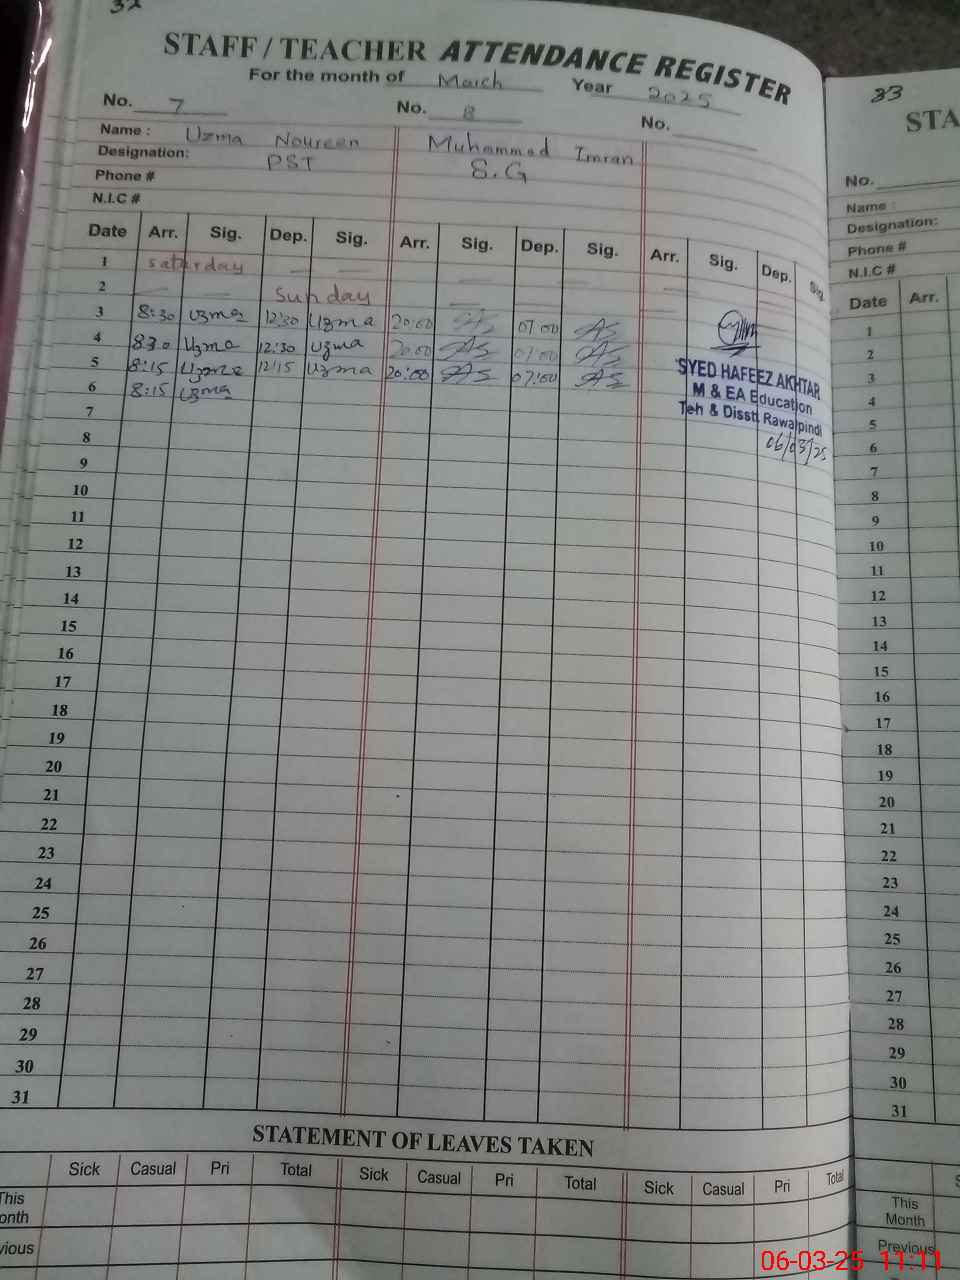 32
STAFF / TEACHER ATTENDANCE REGISTER
For the month of March Year 2025
No. 7 No. 8 No.
Name : Uzma Noureen Muhammad Imran
Designation: PST S.G
Phone #
N.I.C #
Date Arr. Sig. Dep. Sig. Arr. Sig. Dep. Sig. Arr. Sig. Dep. Sig.
1 saturday — —
2 — — Sunday —
3 8:30 Uzma 12:30 Uzma 20:00 07:00
4 8:30 Uzma 12:30 Uzma 20:00 07:00
5 8:15 Uzma 12:15 Uzma 20:00 07:00
6 8:15 Uzma
SYED HAFEEZ AKHTAR
M & EA Education
Teh & Disstt Rawalpindi
06/03/25
7
8
9
10
11
12
13
14
15
16
17
18
19
20
21
22
23
24
25
26
27
28
29
30
31
STATEMENT OF LEAVES TAKEN
Sick Casual Pri Total Sick Casual Pri Total Sick Casual Pri Total
This
onth
vious
33
STA
No.
Name :
Designation:
Phone #
N.I.C #
Date Arr.
1
2
3
4
5
6
7
8
9
10
11
12
13
14
15
16
17
18
19
20
21
22
23
24
25
26
27
28
29
30
31
This
Month
Previous
06-03-25 11:11